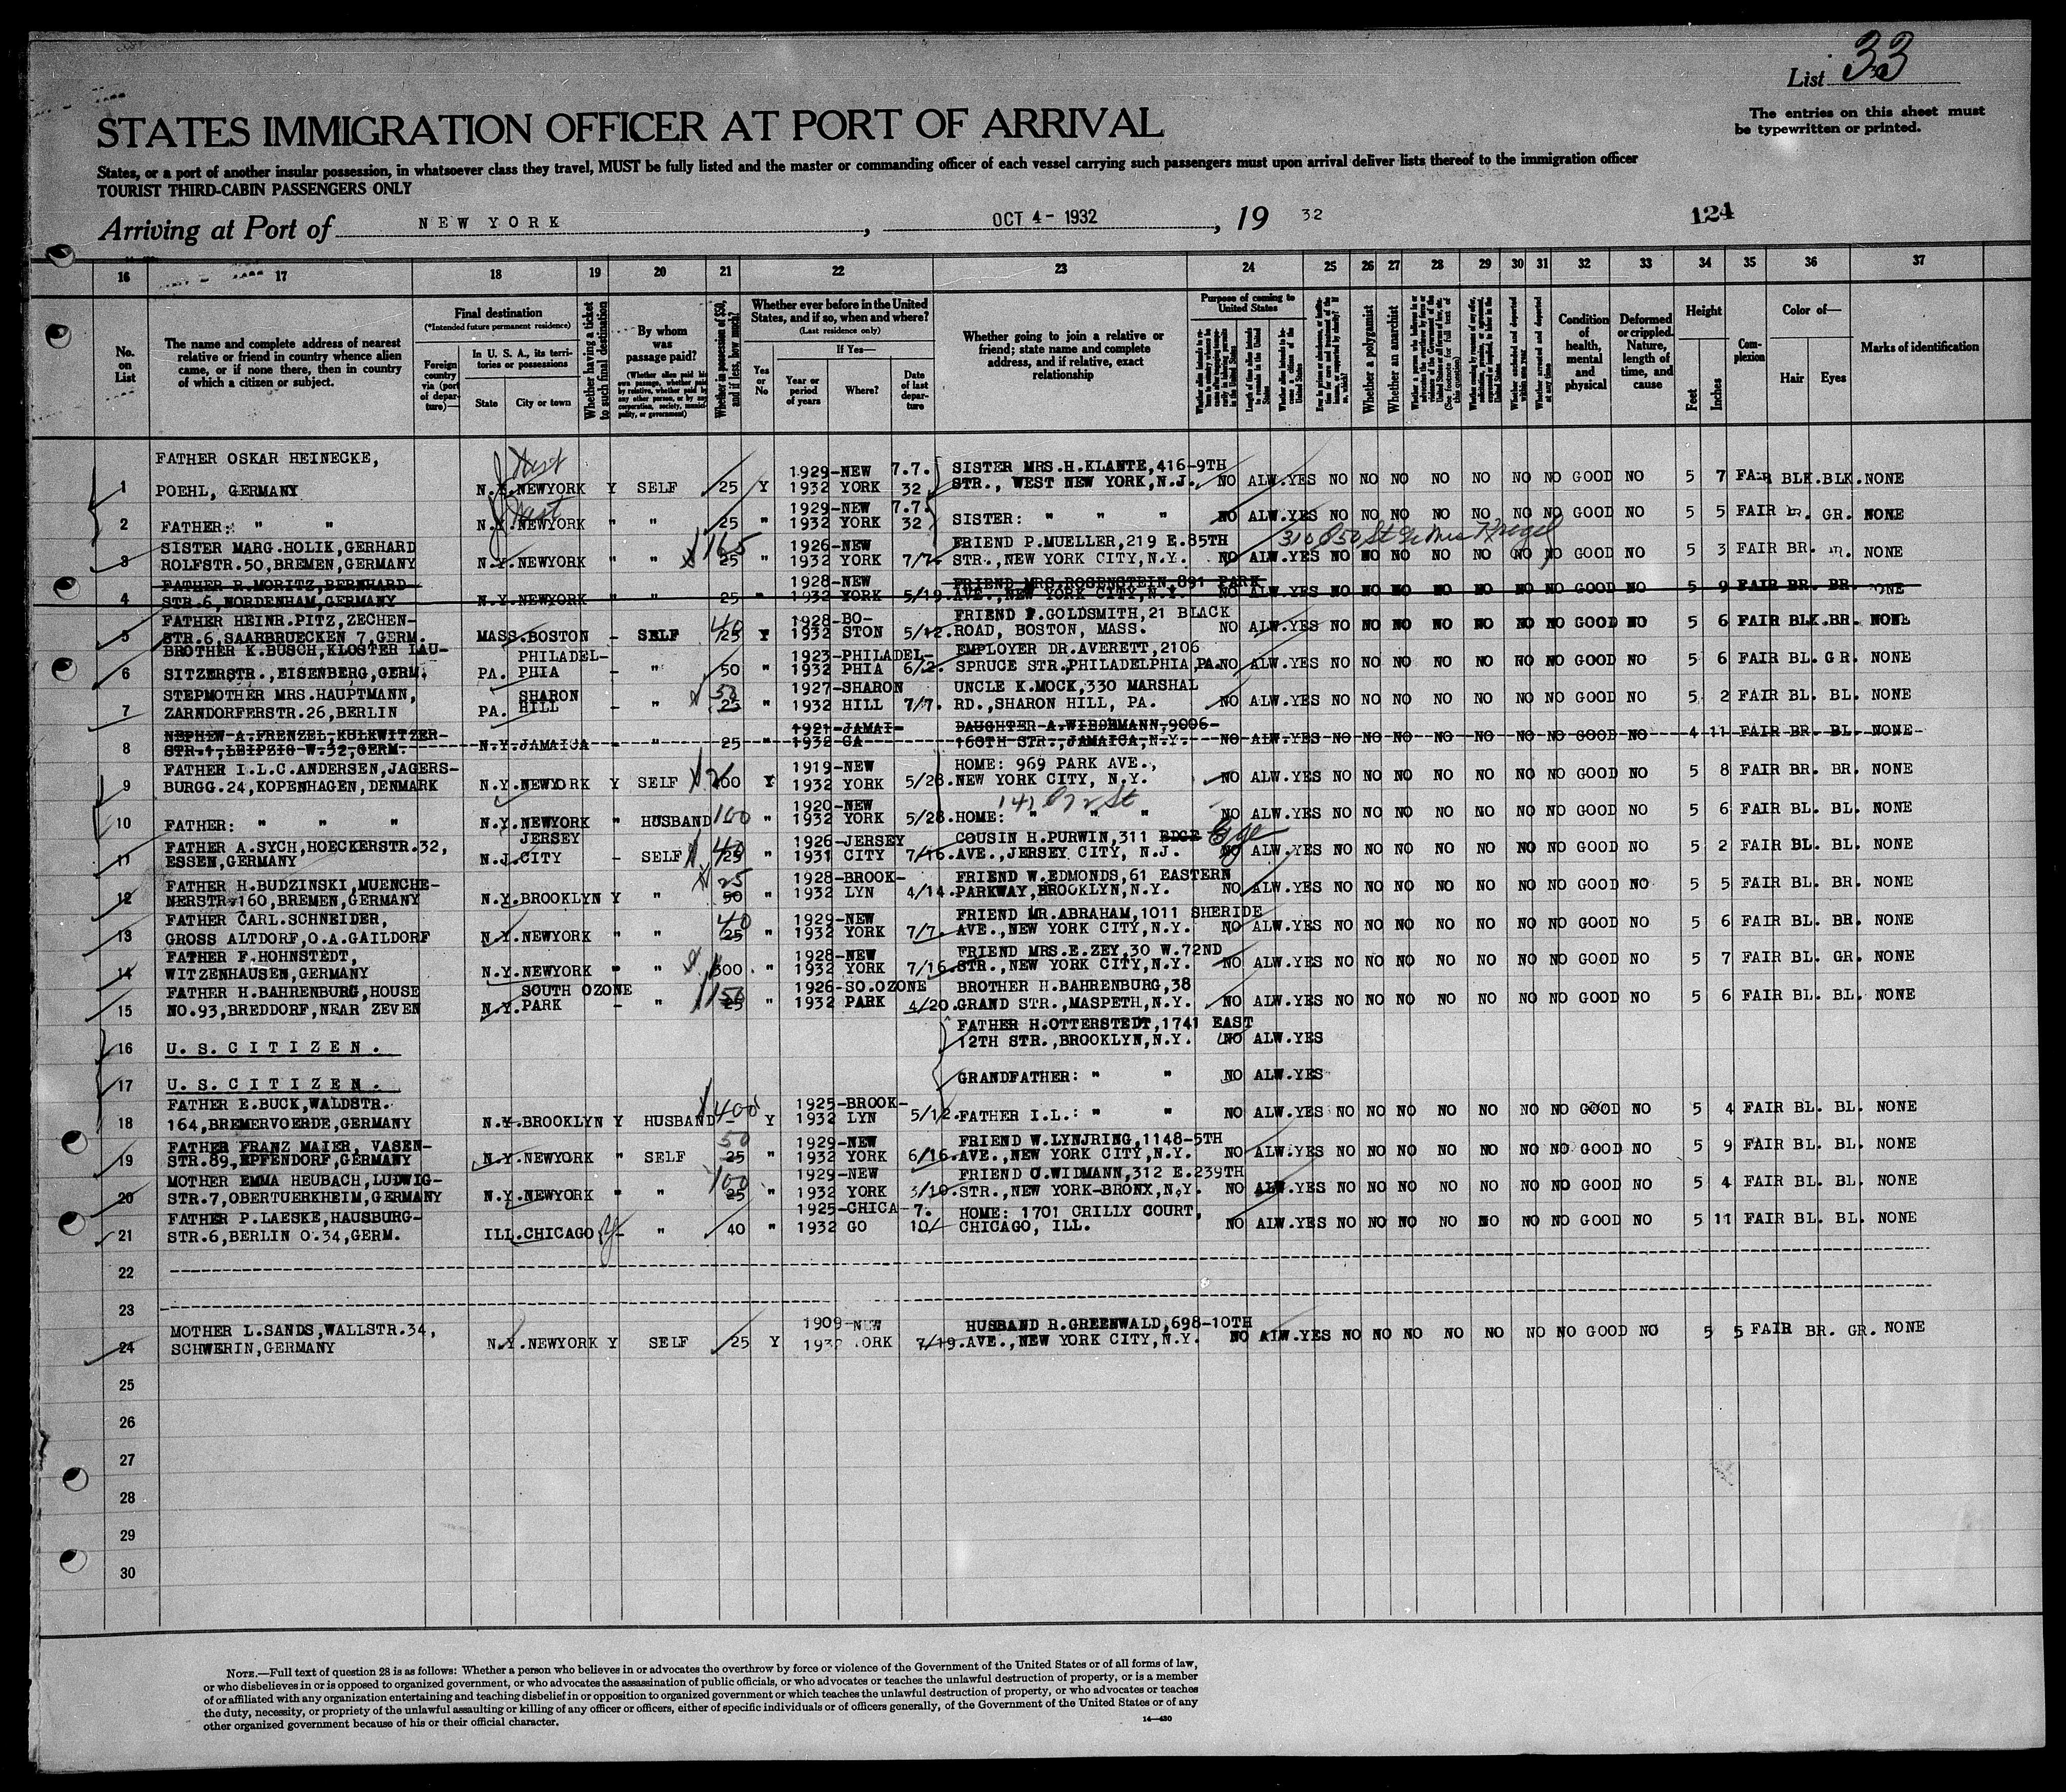 List 33
The entries on this sheet must
be typewritten or printed.
STATES IMMIGRATION OFFICER AT PORT OF ARRIVAL
States, or a port of another insular possession, in whatsoever class they travel, MUST be fully listed and the master or commanding officer of each vessel carrying such passengers must upon arrival deliver lists thereof to the immigration officer
TOURIST THIRD-CABIN PASSENGERS ONLY
Arriving at Port of NEW YORK, OCT 4- 1932, 19 32
124
16 17 18 19 20 21 22 23 24 25 26 27 28 29 30 31 32 33 34 35 36 37
No. on List
The name and complete address of nearest
relative or friend in country whence alien
came, or if none there, then in country
of which a citizen or subject.
Final destination
(*Intended future permanent residence)
Foreign country via (port of departure)—
In U. S. A., its territories or possessions
State
City or town
Whether having a ticket to such final destination
By whom was passage paid?
(Whether alien paid his own passage, whether paid by relative, whether paid by any other person, or by any corporation, society, municipality, or government)
Whether in possession of $50, and if less, how much?
Whether ever before in the United
States, and if so, when and where?
(Last residence only)
Yes or No
If Yes—
Year or period of years
Where?
Date of last departure
Whether going to join a relative or
friend; state name and complete
address, and if relative, exact
relationship
Purpose of coming to United States
Whether a polygamist
Whether an anarchist
Condition of health, mental and physical
Deformed or crippled. Nature, length of time, and cause
Height
Feet
Inches
Complexion
Color of—
Hair
Eyes
Marks of identification
FATHER OSKAR HEINECKE, 1929-NEW 7.7. SISTER MRS.H.KLANTE,416-9TH
1 POEHL, GERMANY N.Y.NEWYORK Y SELF 25 Y 1932 YORK 32 STR., WEST NEW YORK,N.J. NO ALW.YES NO NO NO NO NO NO NO GOOD NO 5 7 FAIR BLK.BLK.NONE
1929-NEW 7.7.
2 FATHER: " " N.Y.NEWYORK " " 25 " 1932 YORK 32 SISTER: " " " NO ALW.YES NO NO NO NO NO NO NO GOOD NO 5 5 FAIR GR. NONE
SISTER MARG.HOLIK,GERHARD 165 1926-NEW FRIEND P.MUELLER,219 E.85TH 310
3 ROLFSTR.50,BREMEN,GERMANY N.Y.NEWYORK " " 25 " 1932 YORK 7/7. STR.,NEW YORK CITY,N.Y. NO ALW.YES NO NO NO NO NO NO NO GOOD NO 5 3 FAIR BR. NONE
FATHER R.MORITZ,BERNHARD 1928-NEW FRIEND MRS.ROSENSTEIN,891 PARK
4 STR.6,NORDENHAM,GERMANY N.Y.NEWYORK " " 25 " 1932 YORK 5/19. AVE.,NEW YORK CITY,N.Y. NO ALW.YES NO NO NO NO NO NO NO GOOD NO 5 9 FAIR BR. BR. NONE
FATHER HEINR.PITZ,ZECHEN- 40 1928-BO- FRIEND F.GOLDSMITH,21 BLACK
5 STR.6,SAARBRUECKEN 7,GERM. MASS.BOSTON - SELF 25 Y 1932 STON 5/12. ROAD, BOSTON, MASS. NO ALW.YES NO NO NO NO NO NO NO GOOD NO 5 6 FAIR BLK.BR. NONE
BROTHER K.BUSCH,KLOSTER LAU- PHILADEL- 1923-PHILADEL- EMPLOYER DR.AVERETT,2106
6 SITZERSTR.,EISENBERG,GERM. PA. PHIA - " 50 " 1932 PHIA 6/2. SPRUCE STR.,PHILADELPHIA,PA. NO ALW.YES NO NO NO NO NO NO NO GOOD NO 5 6 FAIR BL. GR. NONE
STEPMOTHER MRS.HAUPTMANN, SHARON 50 1927-SHARON UNCLE K.MOCK,330 MARSHAL
7 ZARNDORFERSTR.26,BERLIN PA. HILL - " 25 " 1932 HILL 7/7. RD.,SHARON HILL, PA. NO ALW.YES NO NO NO NO NO NO NO GOOD NO 5 2 FAIR BL. BL. NONE
NEPHEW A.FRENZEL,KULKWITZER- 1921-JAMAI- DAUGHTER A.WIEDEMANN,9006-
8 STR.1,LEIPZIG W.32,GERM. N.Y.JAMAICA - " 25 " 1932 CA 160TH STR.,JAMAICA,N.Y. NO ALW.YES NO NO NO NO NO NO NO GOOD NO 4 11 FAIR BR. BL. NONE
FATHER I.L.C.ANDERSEN,JAGERS- 1919-NEW HOME: 969 PARK AVE.,
9 BURGG.24,KOPENHAGEN,DENMARK N.Y.NEWYORK Y SELF 200 Y 1932 YORK 5/28. NEW YORK CITY, N.Y. NO ALW.YES NO NO NO NO NO NO NO GOOD NO 5 8 FAIR BR. BR. NONE
1920-NEW
10 FATHER: " " " N.Y.NEWYORK " HUSBAND 100 " 1932 YORK 5/28. HOME: " " " NO ALW.YES NO NO NO NO NO NO NO GOOD NO 5 6 FAIR BL. BL. NONE
FATHER A.SYCH,HOECKERSTR.32, JERSEY 40 1926-JERSEY COUSIN H.PURWIN,311 EDGE Ege
11 ESSEN,GERMANY N.J.CITY - SELF 25 " 1931 CITY 7/16. AVE.,JERSEY CITY, N.J. NO ALW.YES NO NO NO NO NO NO NO GOOD NO 5 2 FAIR BL. BL. NONE
FATHER H.BUDZINSKI,MUENCHE- 25 1928-BROOK- FRIEND W.EDMONDS,61 EASTERN
12 NERSTR.160,BREMEN,GERMANY N.Y.BROOKLYN Y " 50 " 1932 LYN 4/14. PARKWAY,BROOKLYN,N.Y. NO ALW.YES NO NO NO NO NO NO NO GOOD NO 5 5 FAIR BL. BR. NONE
FATHER CARL.SCHNEIDER, 40 1929-NEW FRIEND MR.ABRAHAM,1011 SHERIDE
13 GROSS ALTDORF,O.A.GAILDORF N.Y.NEWYORK " " 25 " 1932 YORK 7/7. AVE.,NEW YORK CITY,N.Y. NO ALW.YES NO NO NO NO NO NO NO GOOD NO 5 6 FAIR BL. BR. NONE
FATHER F.HOHNSTEDT, 1928-NEW FRIEND MRS.E.ZEY,30 W.72ND
14 WITZENHAUSEN,GERMANY N.Y.NEWYORK " " 300 " 1932 YORK 7/16. STR.,NEW YORK CITY,N.Y. NO ALW.YES NO NO NO NO NO NO NO GOOD NO 5 7 FAIR BL. GR. NONE
FATHER H.BAHRENBURG,HOUSE SOUTH OZONE 1926-SO.OZONE BROTHER H.BAHRENBURG,38
15 NO.93,BREDDORF,NEAR ZEVEN N.Y.PARK - " 25 " 1932 PARK 4/20. GRAND STR.,MASPETH,N.Y. NO ALW.YES NO NO NO NO NO NO NO GOOD NO 5 6 FAIR BL. BL. NONE
FATHER H.OTTERSTEDT,1741 EAST
16 U. S. C I T I Z E N . 12TH STR.,BROOKLYN,N.Y. NO ALW.YES
17 U. S. C I T I Z E N . GRANDFATHER: " " NO ALW.YES
FATHER E.BUCK,WALDSTR. 400 1925-BROOK-
18 164,BREMERVOERDE,GERMANY N.Y.BROOKLYN Y HUSBAND - Y 1932 LYN 5/12. FATHER I.L.: " " NO ALW.YES NO NO NO NO NO NO NO GOOD NO 5 4 FAIR BL. BL. NONE
FATHER FRANZ MAIER, VASEN- 50 1929-NEW FRIEND W.LYNJRING,1148-5TH
19 STR.89,EPFENDORF,GERMANY N.Y.NEWYORK " SELF 25 " 1932 YORK 6/16. AVE.,NEW YORK CITY,N.Y. NO ALW.YES NO NO NO NO NO NO NO GOOD NO 5 9 FAIR BL. BL. NONE
MOTHER EMMA HEUBACH,LUDWIG- 100 1929-NEW FRIEND O.WIDMANN,312 E.239TH
20 STR.7,OBERTUERKHEIM,GERMANY N.Y.NEWYORK " " 25 " 1932 YORK 3/10. STR.,NEW YORK-BRONX,N.Y. NO ALW.YES NO NO NO NO NO NO NO GOOD NO 5 4 FAIR BL. BL. NONE
FATHER P.LAESKE,HAUSBURG- 1925-CHICA- 7. HOME: 1701 CRILLY COURT,
21 STR.6,BERLIN O.34,GERM. ILL.CHICAGO y - " 40 " 1932 GO 10/ CHICAGO, ILL. NO ALW.YES NO NO NO NO NO NO NO GOOD NO 5 11 FAIR BL. BL. NONE
22
23
MOTHER L.SANDS,WALLSTR.34, 1909-NEW HUSBAND R.GREENWALD,698-10TH
24 SCHWERIN,GERMANY N.Y.NEWYORK Y SELF 25 Y ORK 7/19. AVE.,NEW YORK CITY,N.Y. NO ALW.YES NO NO NO NO NO NO NO GOOD NO 5 5 FAIR BR. GR. NONE
25
26
27
28
29
30
NOTE.—Full text of question 28 is as follows: Whether a person who believes in or advocates the overthrow by force or violence of the Government of the United States or of all forms of law,
or who disbelieves in or is opposed to organized government, or who advocates the assassination of public officials, or who advocates or teaches the unlawful destruction of property, or is a member
of or affiliated with any organization entertaining and teaching disbelief in or opposition to organized government or which teaches the unlawful destruction of property, or who advocates or teaches
the duty, necessity, or propriety of the unlawful assaulting or killing of any officer or officers, either of specific individuals or of officers generally, of the Government of the United States or of any
other organized government because of his or their official character.
14—430